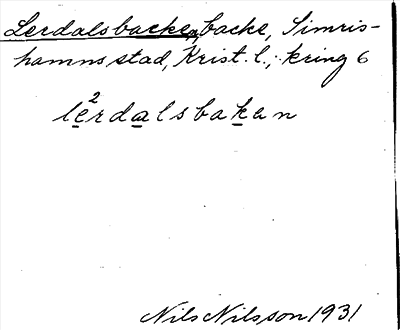 Lerdalsbacken, backe, Simris-
hamns stad, Krist. l.; kring 6
le²rdalsbakan
Nils Nilsson 1931